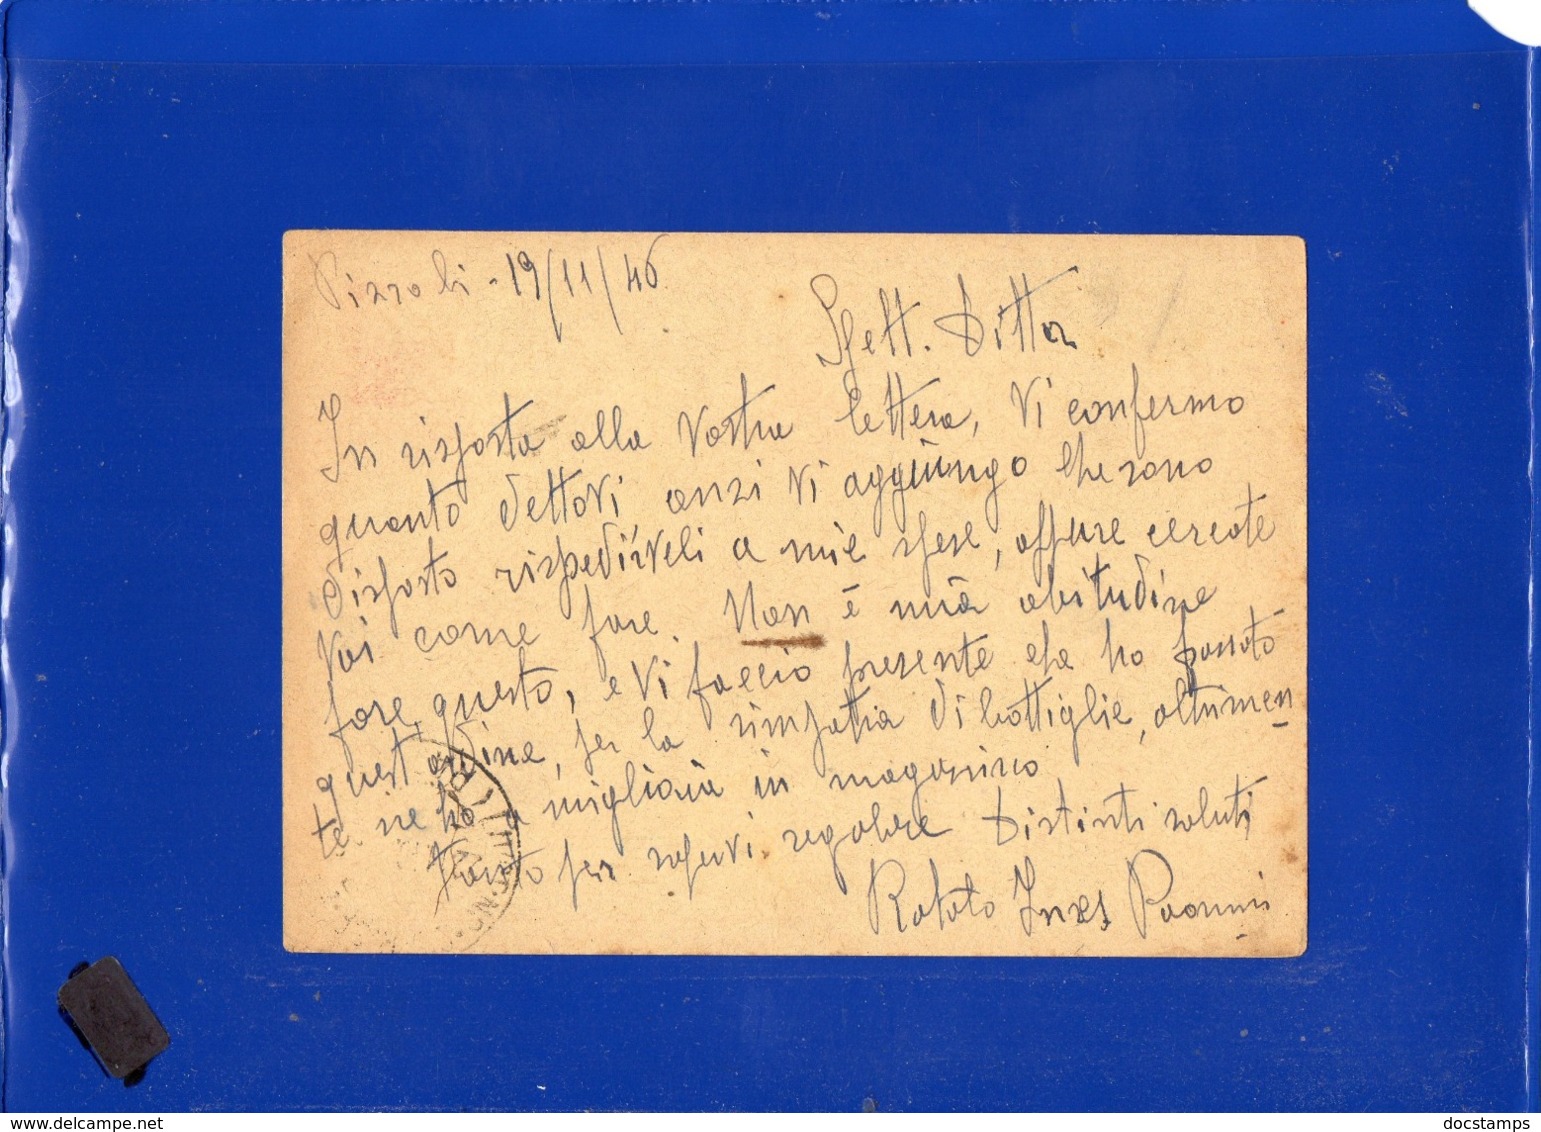 Pizzoli - 19/11/46
Spett. Ditta
In risposta alla Vostra lettera, Vi confermo
quanto dettovi anzi Vi aggiungo che sono
disposto rispedirveli a mie spese, oppure cercate
Voi come fare. Non è mia abitudine
fare questo, e Vi faccio presente che ho passato
quest'ordine, per la simpatia di bottiglie, altrimen
te ne ho a migliaia in magazzino
Tanto per sapervi regolare Distinti saluti
Inxs
delcampe.net
docstamps